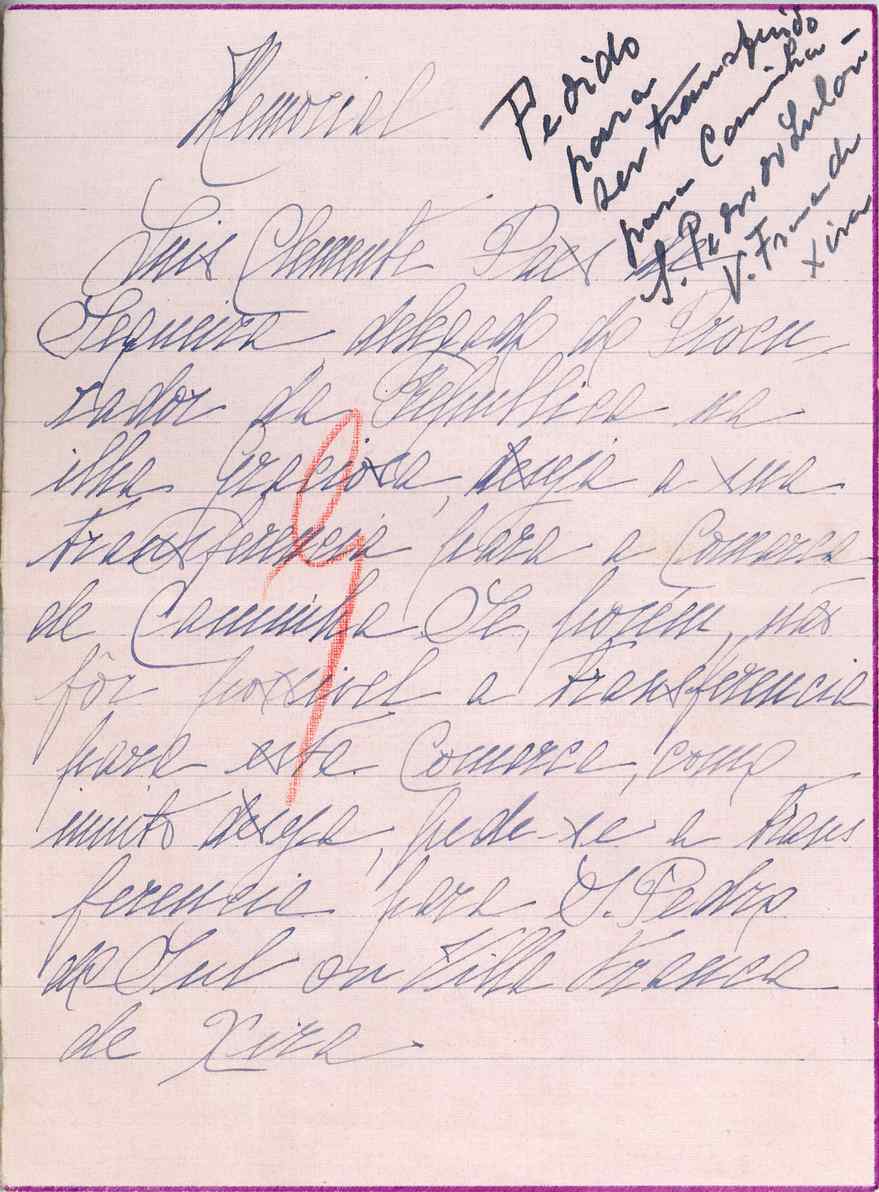 Pedido
para
ser transferido
para Caminha -
S. Pedro do Sul ou
V. Franca de
Xira
Memorial
Luis Clemente Paes de
Sequeira, delegado do Procu-
rador da Republica na
ilha Graciosa, deseja a sua
transferencia para a Comarca
de Caminha. Se, porém, não
fôr possivel a transferencia
para esta Comarca, como
muito deseja, pede-se a trans
ferencia para S. Pedro
do Sul ou Villa Franca
de Xira.